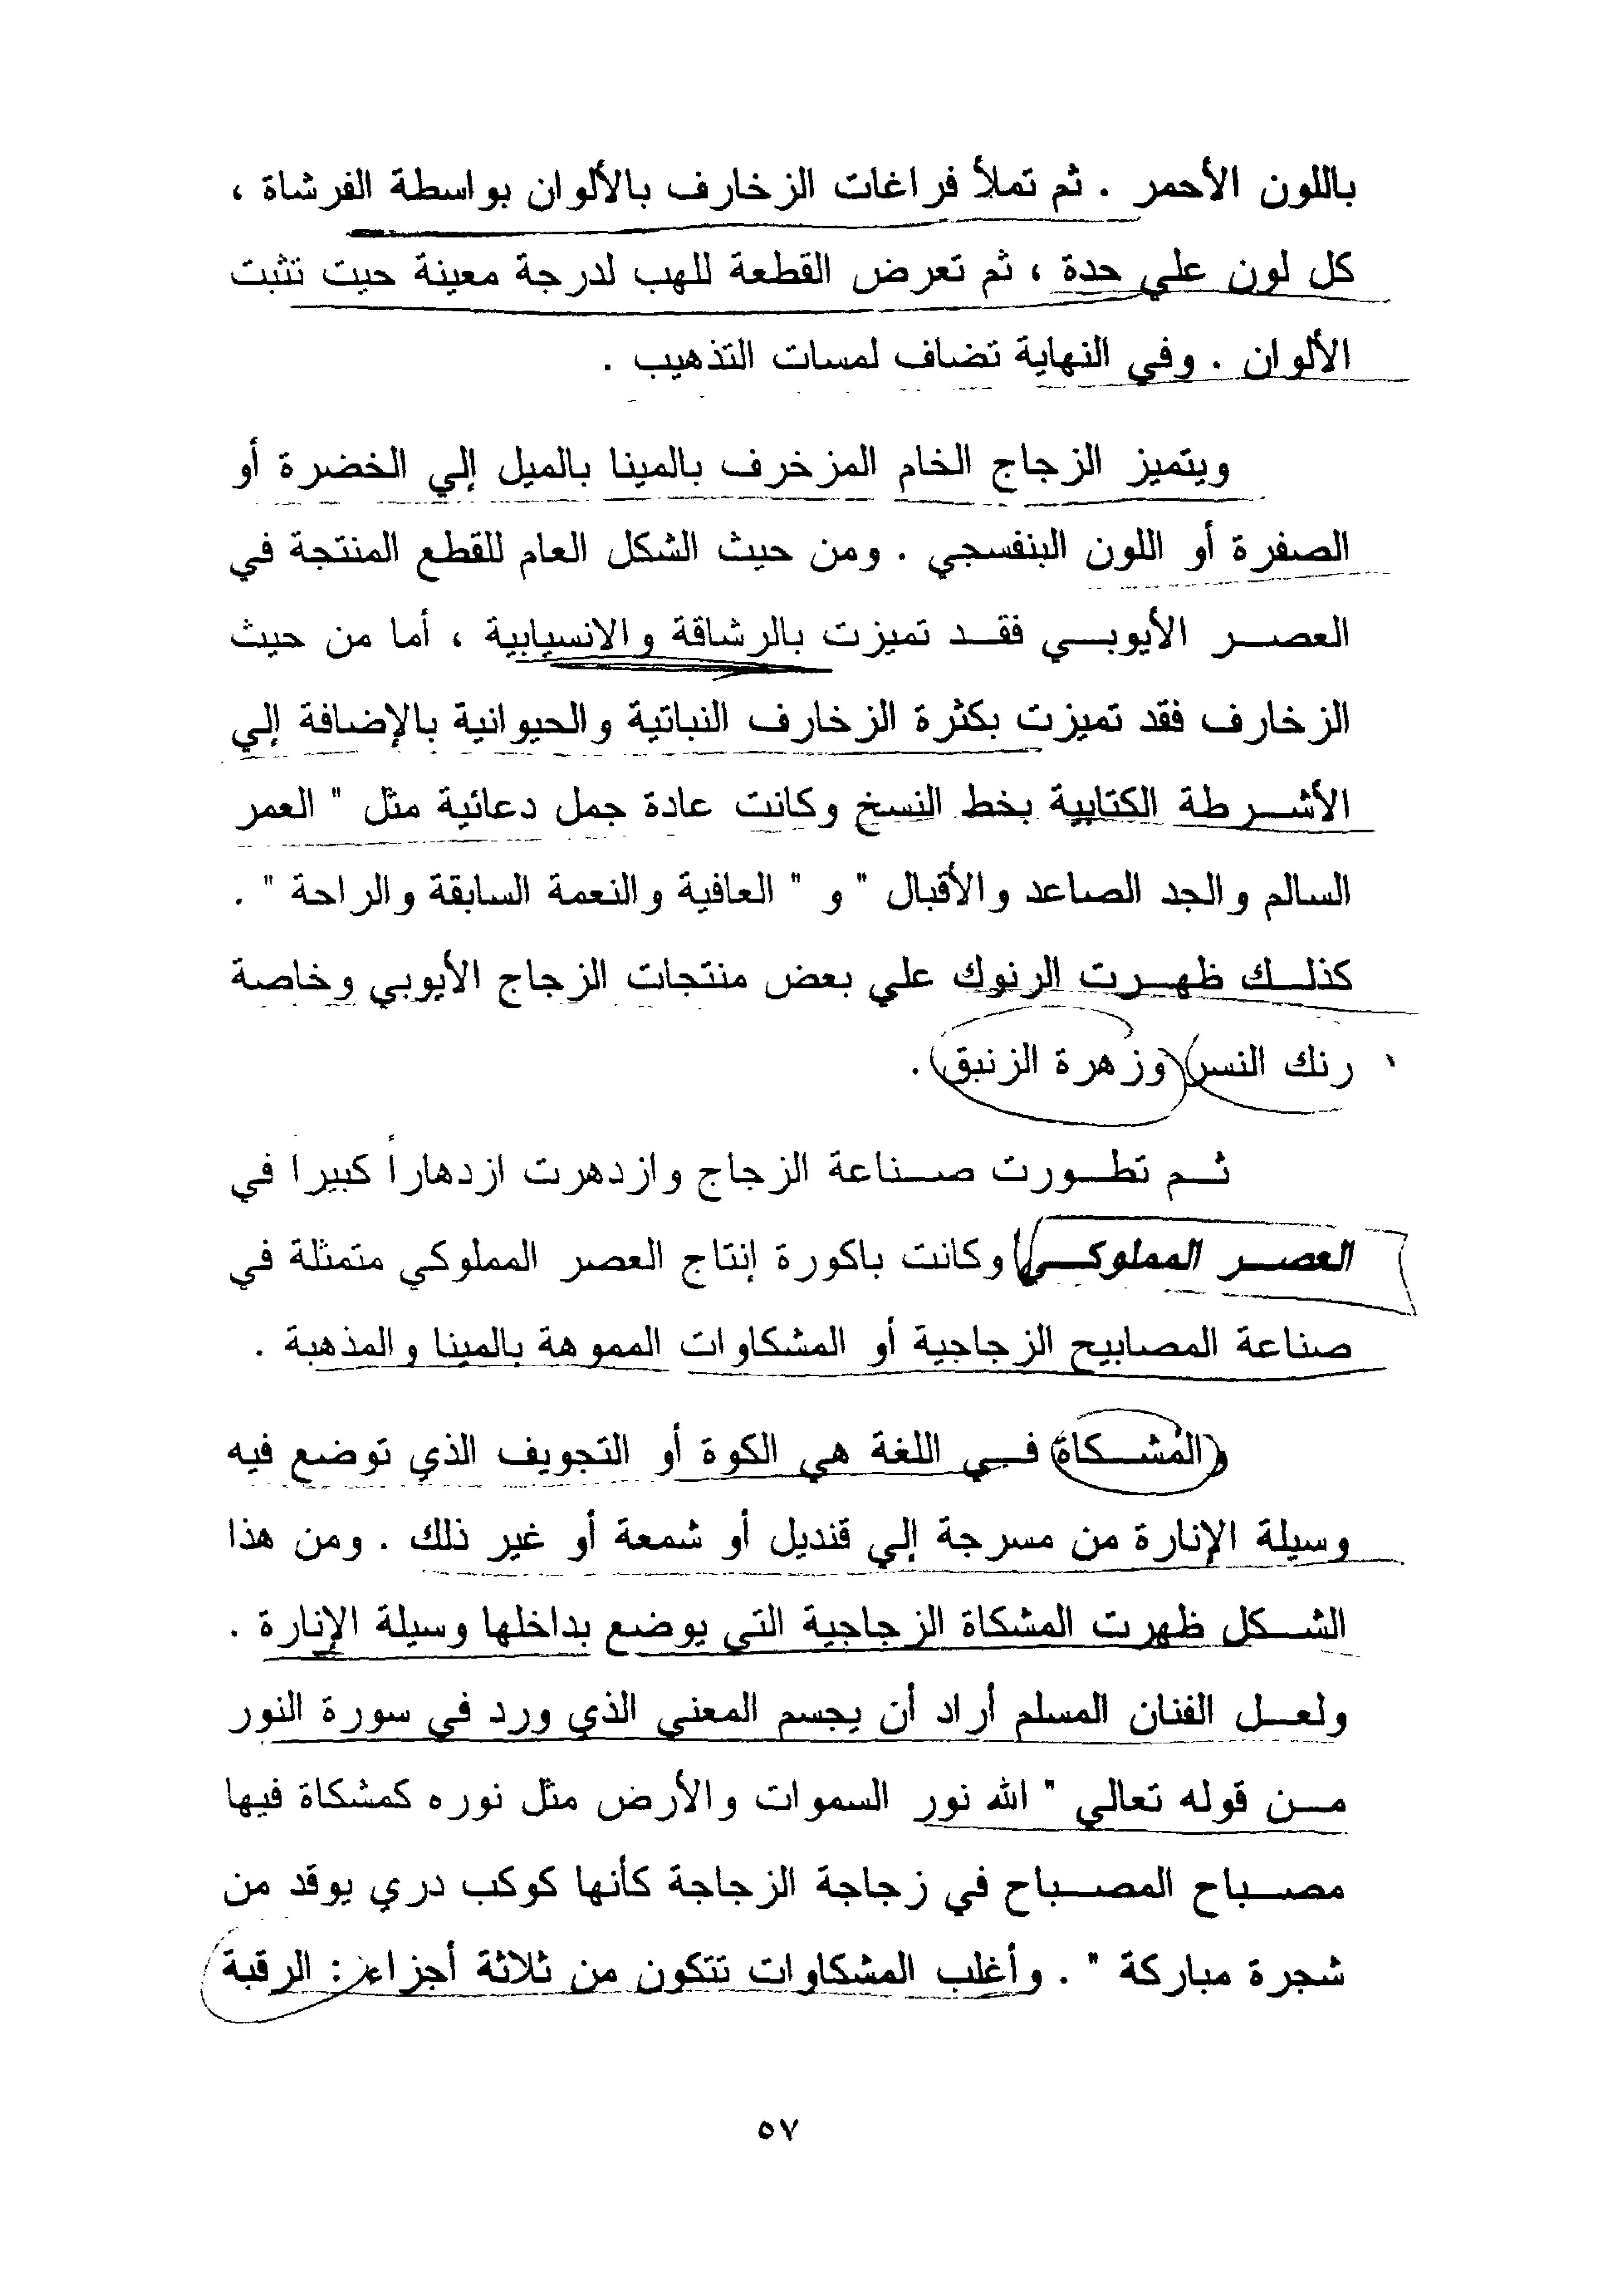 باللون الأحمر . ثم تملأ فراغات الزخارف بالألوان بواسطة الفرشاة ،
كل لون علي حدة ، ثم تعرض القطعة للهب لدرجة معينة حيت تثبت
الألوان . وفي النهاية تضاف لمسات التذهيب .
ويتميز الزجاج الخام المزخرف بالمينا بالميل إلي الخضرة أو
الصفرة أو اللون البنفسجي . ومن حيث الشكل العام للقطع المنتجة في
العصر الأيوبي فقد تميزت بالرشاقة والانسيابية ، أما من حيث
الزخارف فقد تميزت بكثرة الزخارف النباتية والحيوانية بالإضافة إلي
الأشرطة الكتابية بخط النسخ وكانت عادة جمل دعائية مثل " العمر
السالم والجد الصاعد والأقبال " و " العافية والنعمة السابقة والراحة " .
كذلك ظهرت الرنوك علي بعض منتجات الزجاج الأيوبي وخاصة
رنك النسر وزهرة الزنبق .
ثم تطورت صناعة الزجاج وازدهرت ازدهاراً كبيراً في
العصر المملوكي وكانت باكورة إنتاج العصر المملوكي متمثلة في
صناعة المصابيح الزجاجية أو المشكاوات المموهة بالمينا والمذهبة .
والمشكاة في اللغة هي الكوة أو التجويف الذي توضع فيه
وسيلة الإنارة من مسرجة إلي قنديل أو شمعة أو غير ذلك . ومن هذا
الشكل ظهرت المشكاة الزجاجية التي يوضع بداخلها وسيلة الإنارة .
ولعل الفنان المسلم أراد أن يجسم المعني الذي ورد في سورة النور
من قوله تعالي " الله نور السموات والأرض مثل نوره كمشكاة فيها
مصباح المصباح في زجاجة الزجاجة كأنها كوكب دري يوقد من
شجرة مباركة " . وأغلب المشكاوات تتكون من ثلاثة أجزاء : الرقبة
٥٧